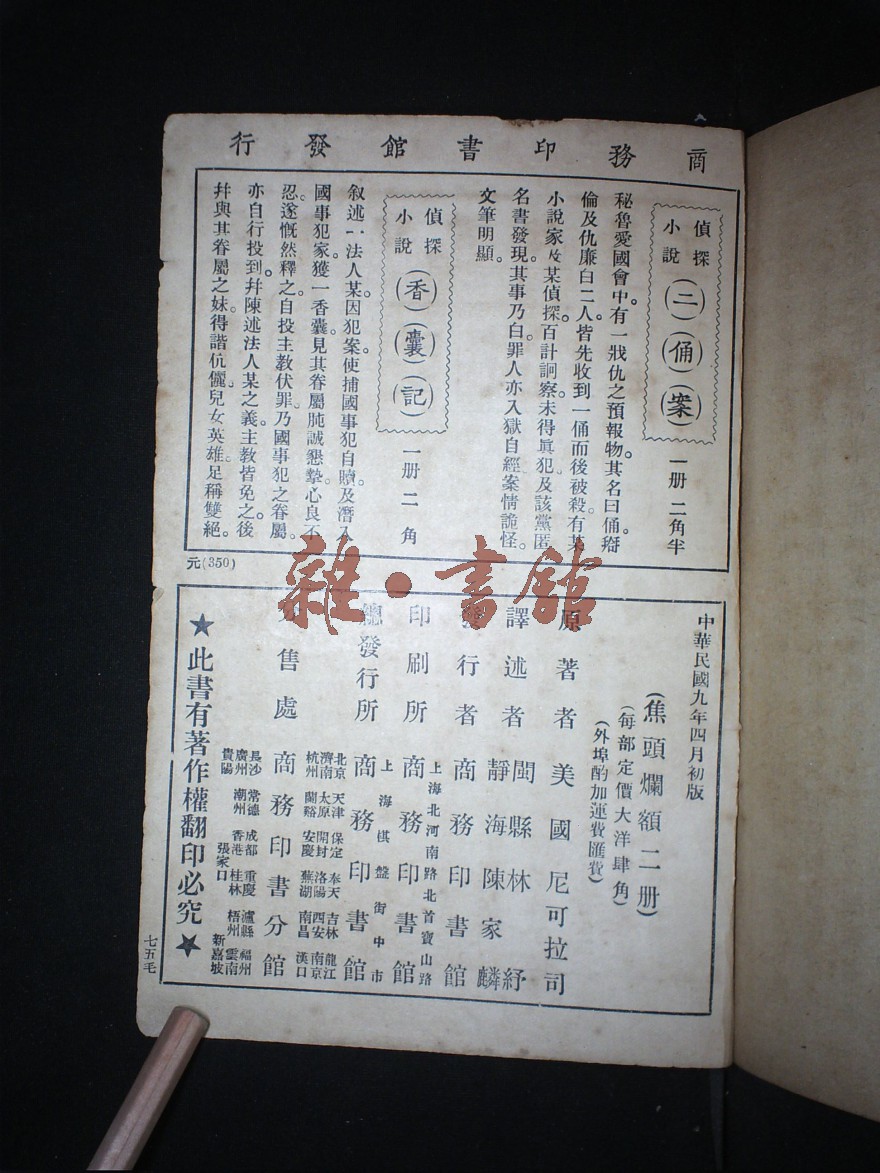 商務印書館發行
偵探小說
(二)(俑)(案)
一册二角半
秘魯愛國會中。有一戕仇之預報物。其名曰俑。瑨
倫及仇廉白二人。皆先收到一俑而後被殺。有某
小說家及某偵探。百計詗察。未得眞犯。及該黨匿
名書發現。其事乃白。罪人亦入獄自經。案情詭怪。
文筆明顯。
偵探小說
(香)(囊)(記)
一册二角
叙述一法人某。因犯案使捕國事犯自贖。及潛入
國事犯家。獲一香囊。見其眷屬肫誠懇摯。心良不
忍。遂慨然釋之。自投主教伏罪。乃國事犯之眷屬。
亦自行投到。幷陳述法人某之義。主教皆免之。後
幷與其眷屬之妹。得諧伉儷。兒女英雄。足稱雙絕。
元(350)
中華民國九年四月初版
(焦頭爛額二册)
(每部定價大洋肆角)
(外埠酌加運費匯費)
原著者 美國尼可拉司
譯述者 閩縣林紓
靜海陳家麟
發行者 商務印書館
印刷所 上海北河南路北首寶山路
商務印書館
總發行所 上海棋盤街中市
商務印書館
分售處 商務印書分館
北京 天津 保定 奉天 吉林 龍江
濟南 太原 開封 洛陽 西安 南京
杭州 蘭谿 安慶 蕪湖 南昌 漢口
長沙 常德 成都 重慶 瀘縣 福州
廣州 潮州 香港 桂林 梧州 雲南
貴陽 張家口 新嘉坡
★此書有著作權翻印必究★
七五毛
雜·書館